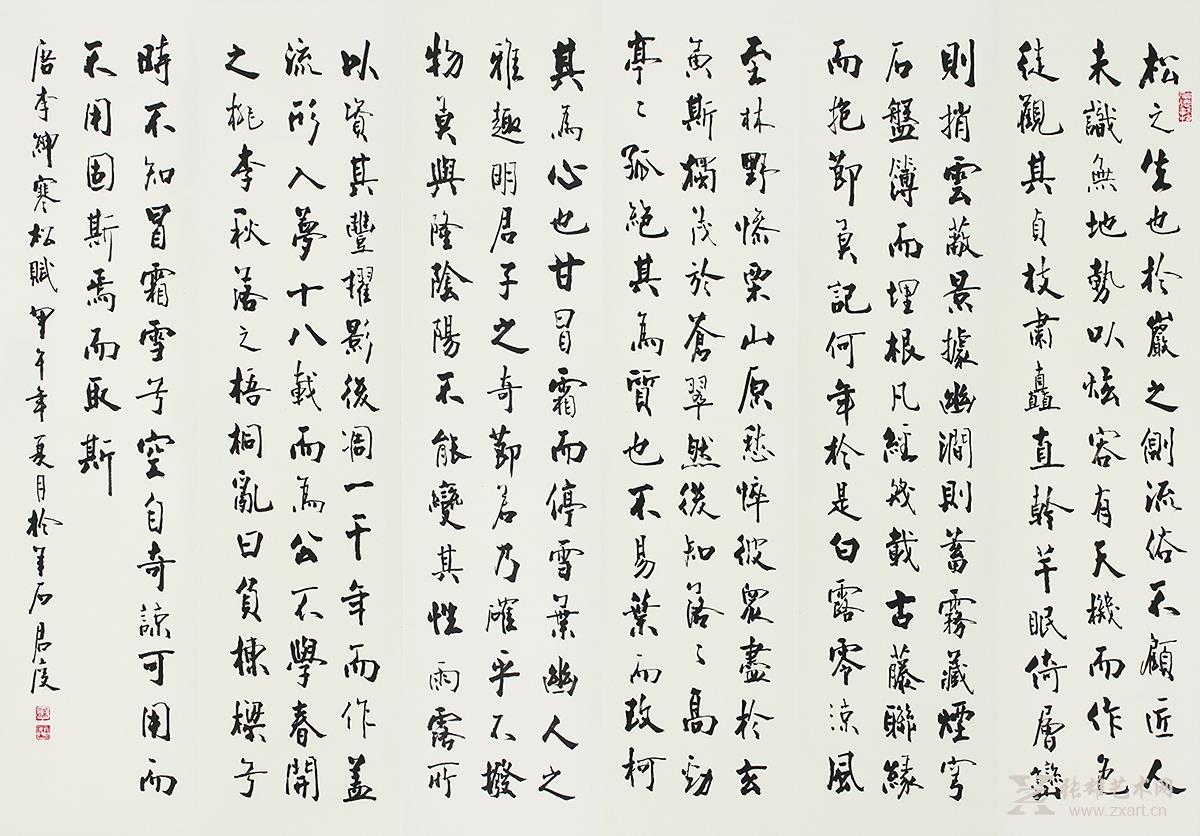 松之生也於巖之側流俗不顧匠人
未識無地勢以炫容有天機而作色
徒觀其貞枝肅矗直幹芊眠倚層巒
則捎雲蔽景據幽澗則蓄霧藏煙穹
石盤簿而埋根凡經幾載古藤聯緣
而抱節莫記何年於是白露零涼風
至林野慘栗山原愁悴彼眾盡於玄
黃斯獨茂於蒼翠然後知落〻高勁
亭〻孤絕其為質也不易葉而改柯
其為心也甘冒霜而停雪葉幽人之
雅趣明君子之奇節若乃確乎不撥
物莫與隆陰陽不能變其性雨露所
以資其豐擢影後凋一千年而作蓋
流形入夢十八載而為公不學春開
之桃李秋落之梧桐亂曰負棟樑兮
時不知冒霜雪兮空自奇諒可用而
不用固斯焉而取斯
唐李紳寒松賦甲午年夏月於羊石君度
张雄艺术网
www.zxart.cn